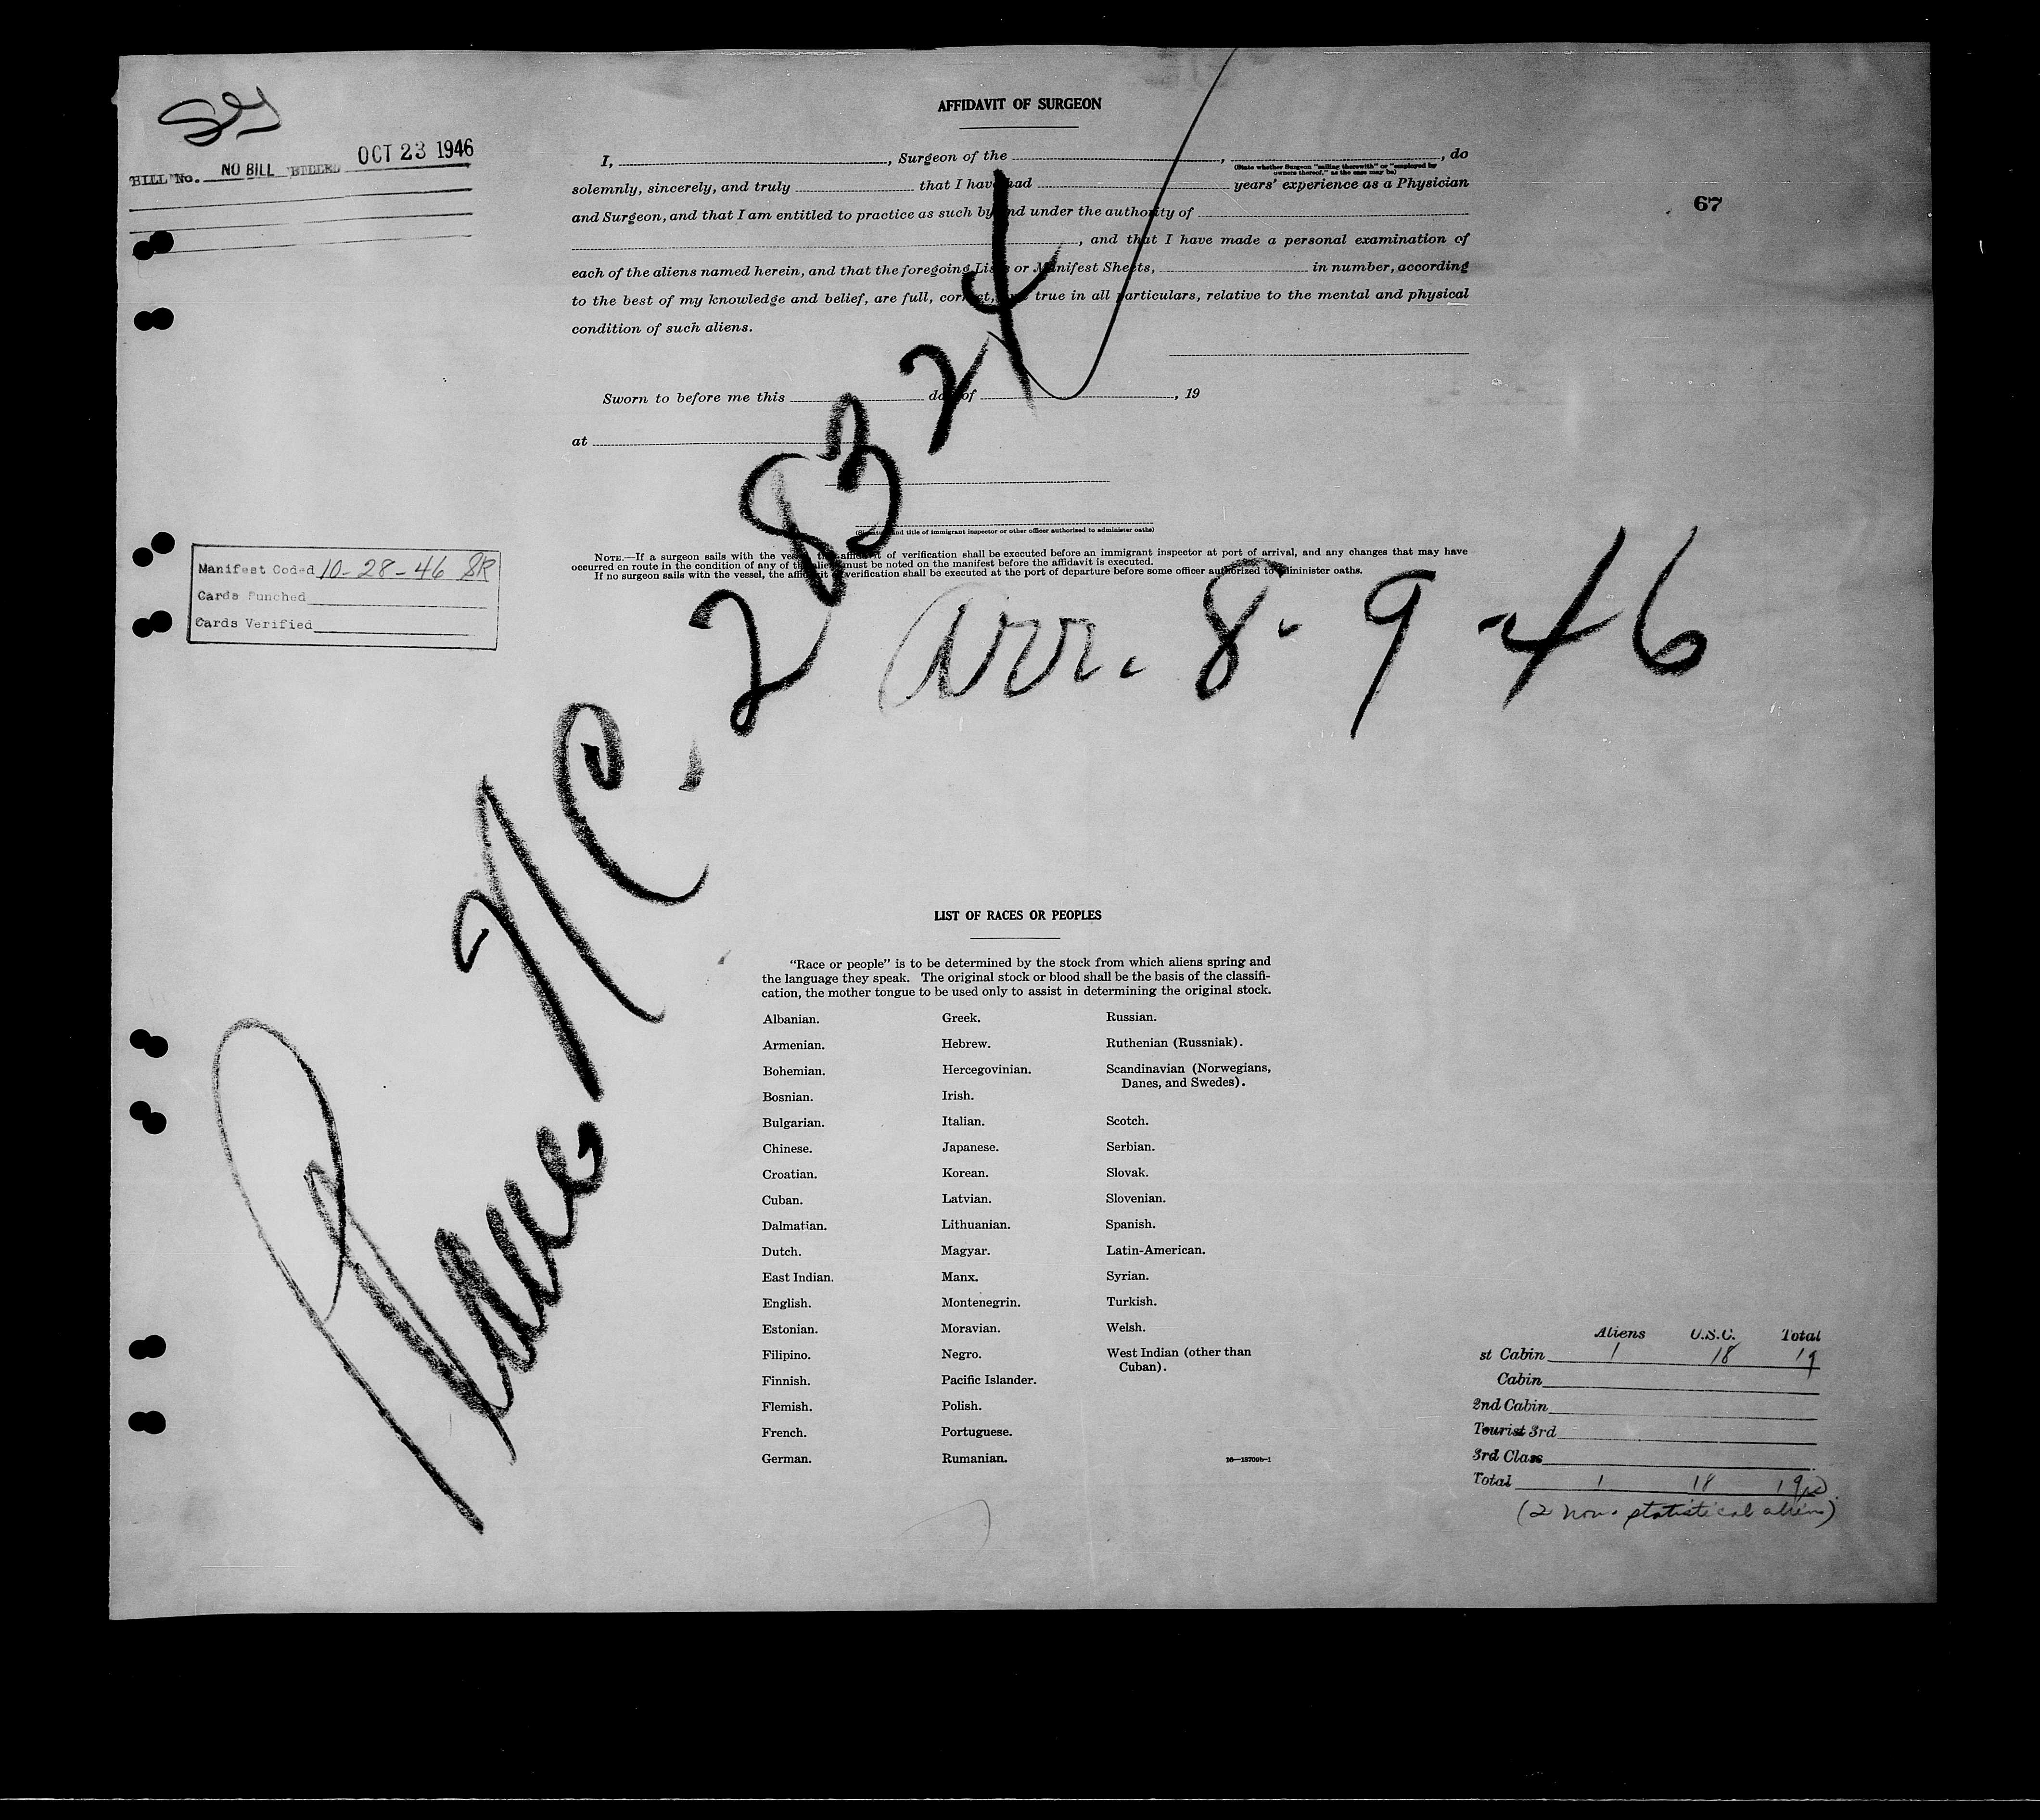 BILL No. NO BILL BILLED OCT 23 1946
AFFIDAVIT OF SURGEON
I, , Surgeon of the , , do
(State whether Surgeon "sailing therewith" or "employed by
owners thereof," as the case may be)
solemnly, sincerely, and truly that I have had years' experience as a Physician
and Surgeon, and that I am entitled to practice as such by and under the authority of
, and that I have made a personal examination of
each of the aliens named herein, and that the foregoing Lists or Manifest Sheets, in number, according
to the best of my knowledge and belief, are full, correct, and true in all particulars, relative to the mental and physical
condition of such aliens.
67
Sworn to before me this day of , 19
at
(Signature and title of immigrant inspector or other officer authorized to administer oaths)
NOTE.—If a surgeon sails with the vessel, this affidavit of verification shall be executed before an immigrant inspector at port of arrival, and any changes that may have
occurred en route in the condition of any of the aliens must be noted on the manifest before the affidavit is executed.
If no surgeon sails with the vessel, the affidavit of verification shall be executed at the port of departure before some officer authorized to administer oaths.
Manifest Coded 10-28-46 SR
Cards Punched
Cards Verified
Plane NC. 28324
Arr. 8-9-46
LIST OF RACES OR PEOPLES
"Race or people" is to be determined by the stock from which aliens spring and
the language they speak. The original stock or blood shall be the basis of the classifi-
cation, the mother tongue to be used only to assist in determining the original stock.
Albanian.
Armenian.
Bohemian.
Bosnian.
Bulgarian.
Chinese.
Croatian.
Cuban.
Dalmatian.
Dutch.
East Indian.
English.
Estonian.
Filipino.
Finnish.
Flemish.
French.
German.
Greek.
Hebrew.
Hercegovinian.
Irish.
Italian.
Japanese.
Korean.
Latvian.
Lithuanian.
Magyar.
Manx.
Montenegrin.
Moravian.
Negro.
Pacific Islander.
Polish.
Portuguese.
Rumanian.
Russian.
Ruthenian (Russniak).
Scandinavian (Norwegians,
Danes, and Swedes).
Scotch.
Serbian.
Slovak.
Slovenian.
Spanish.
Latin-American.
Syrian.
Turkish.
Welsh.
West Indian (other than
Cuban).
16—18709b-1
Aliens U.S.C. Total
st Cabin 1 18 19
Cabin
2nd Cabin
Tourist 3rd
3rd Class
Total 1 18 19
(2 non-statistical aliens)